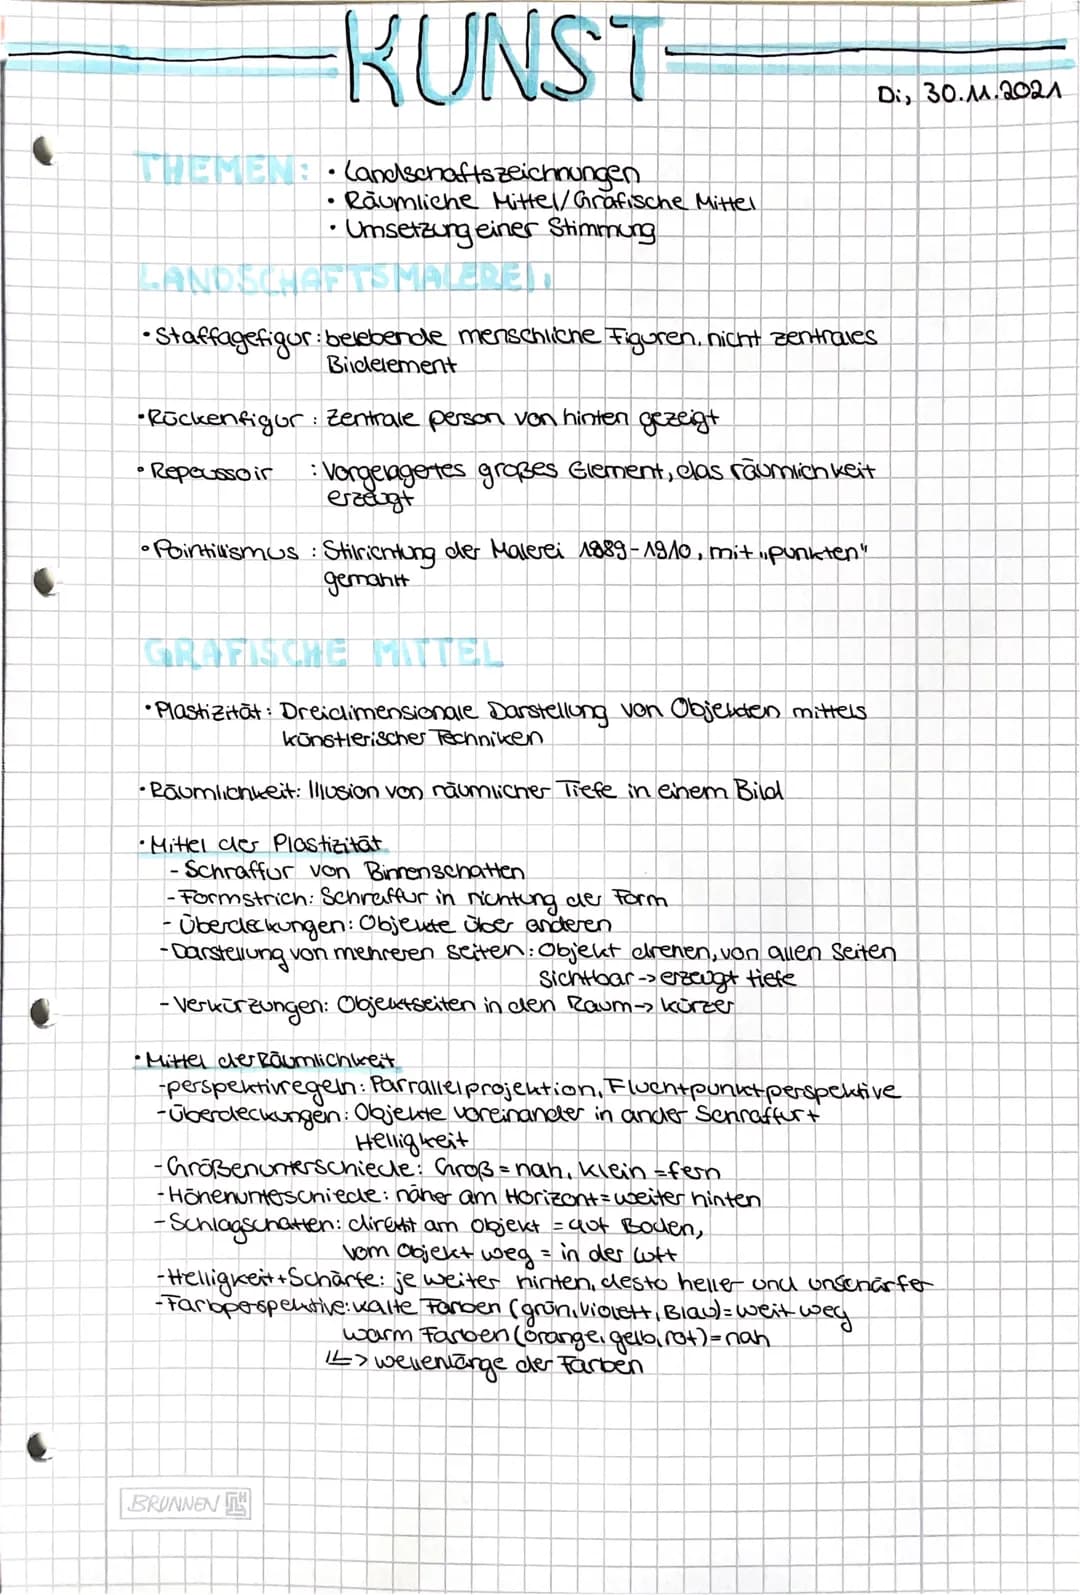 KUNST
Di, 30.11.2021
THEMEN: • Landschaftszeichnungen
• Räumliche Mittel/Grafische Mittel
• Umsetzung einer Stimmung
LANDSCHAFTSMALEREI:
• Staffagefigur: belebende menschliche Figuren, nicht zentrales
Bildelement
• Rückenfigur: Zentrale person von hinten gezeigt
• Repoussoir : Vorgelagertes großes Element, das räumlichkeit
erzeugt
• Pointilismus : Stilrichtung der Malerei 1889-1910, mit „punkten“
gemahlt
GRAFISCHE MITTEL
• Plastizität: Dreidimensionale Darstellung von Objekten mittels
künstlerischer Techniken
• Räumlichkeit: Illusion von räumlicher Tiefe in einem Bild
• Mittel der Plastizität
- Schraffur von Binnenschatten
- Formstrich: Schraffur in richtung der Form
- Überdeckungen: Objekte über anderen
- Darstellung von mehreren seiten: Objekt drehen, von allen Seiten
Sichtbar -> erzeugt tiefe
- Verkürzungen: Objektseiten in den Raum -> kürzer
• Mittel der Räumlichkeit
- perspektivregeln: Parrallelprojektion, Fluchtpunktperspektive
- Überdeckungen: Objekte voreinander in ander Schraffur +
Helligkeit
- Größenunterschiede: Groß = nah, klein = fern
- Höhenunteschiede: näher am Horizont = weiter hinten
- Schlagschatten: direkt am Objekt = auf Boden,
vom Objekt weg = in der Luft
- Helligkeit + Schärfe: je weiter hinten, desto heller und unschärfer
- Farbperspektive: kalte Farben (grün, Violett, Blau) = weit weg
warm Farben (orange, gelb, rot) = nah
↳> wellenlänge der Farben
BRUNNEN